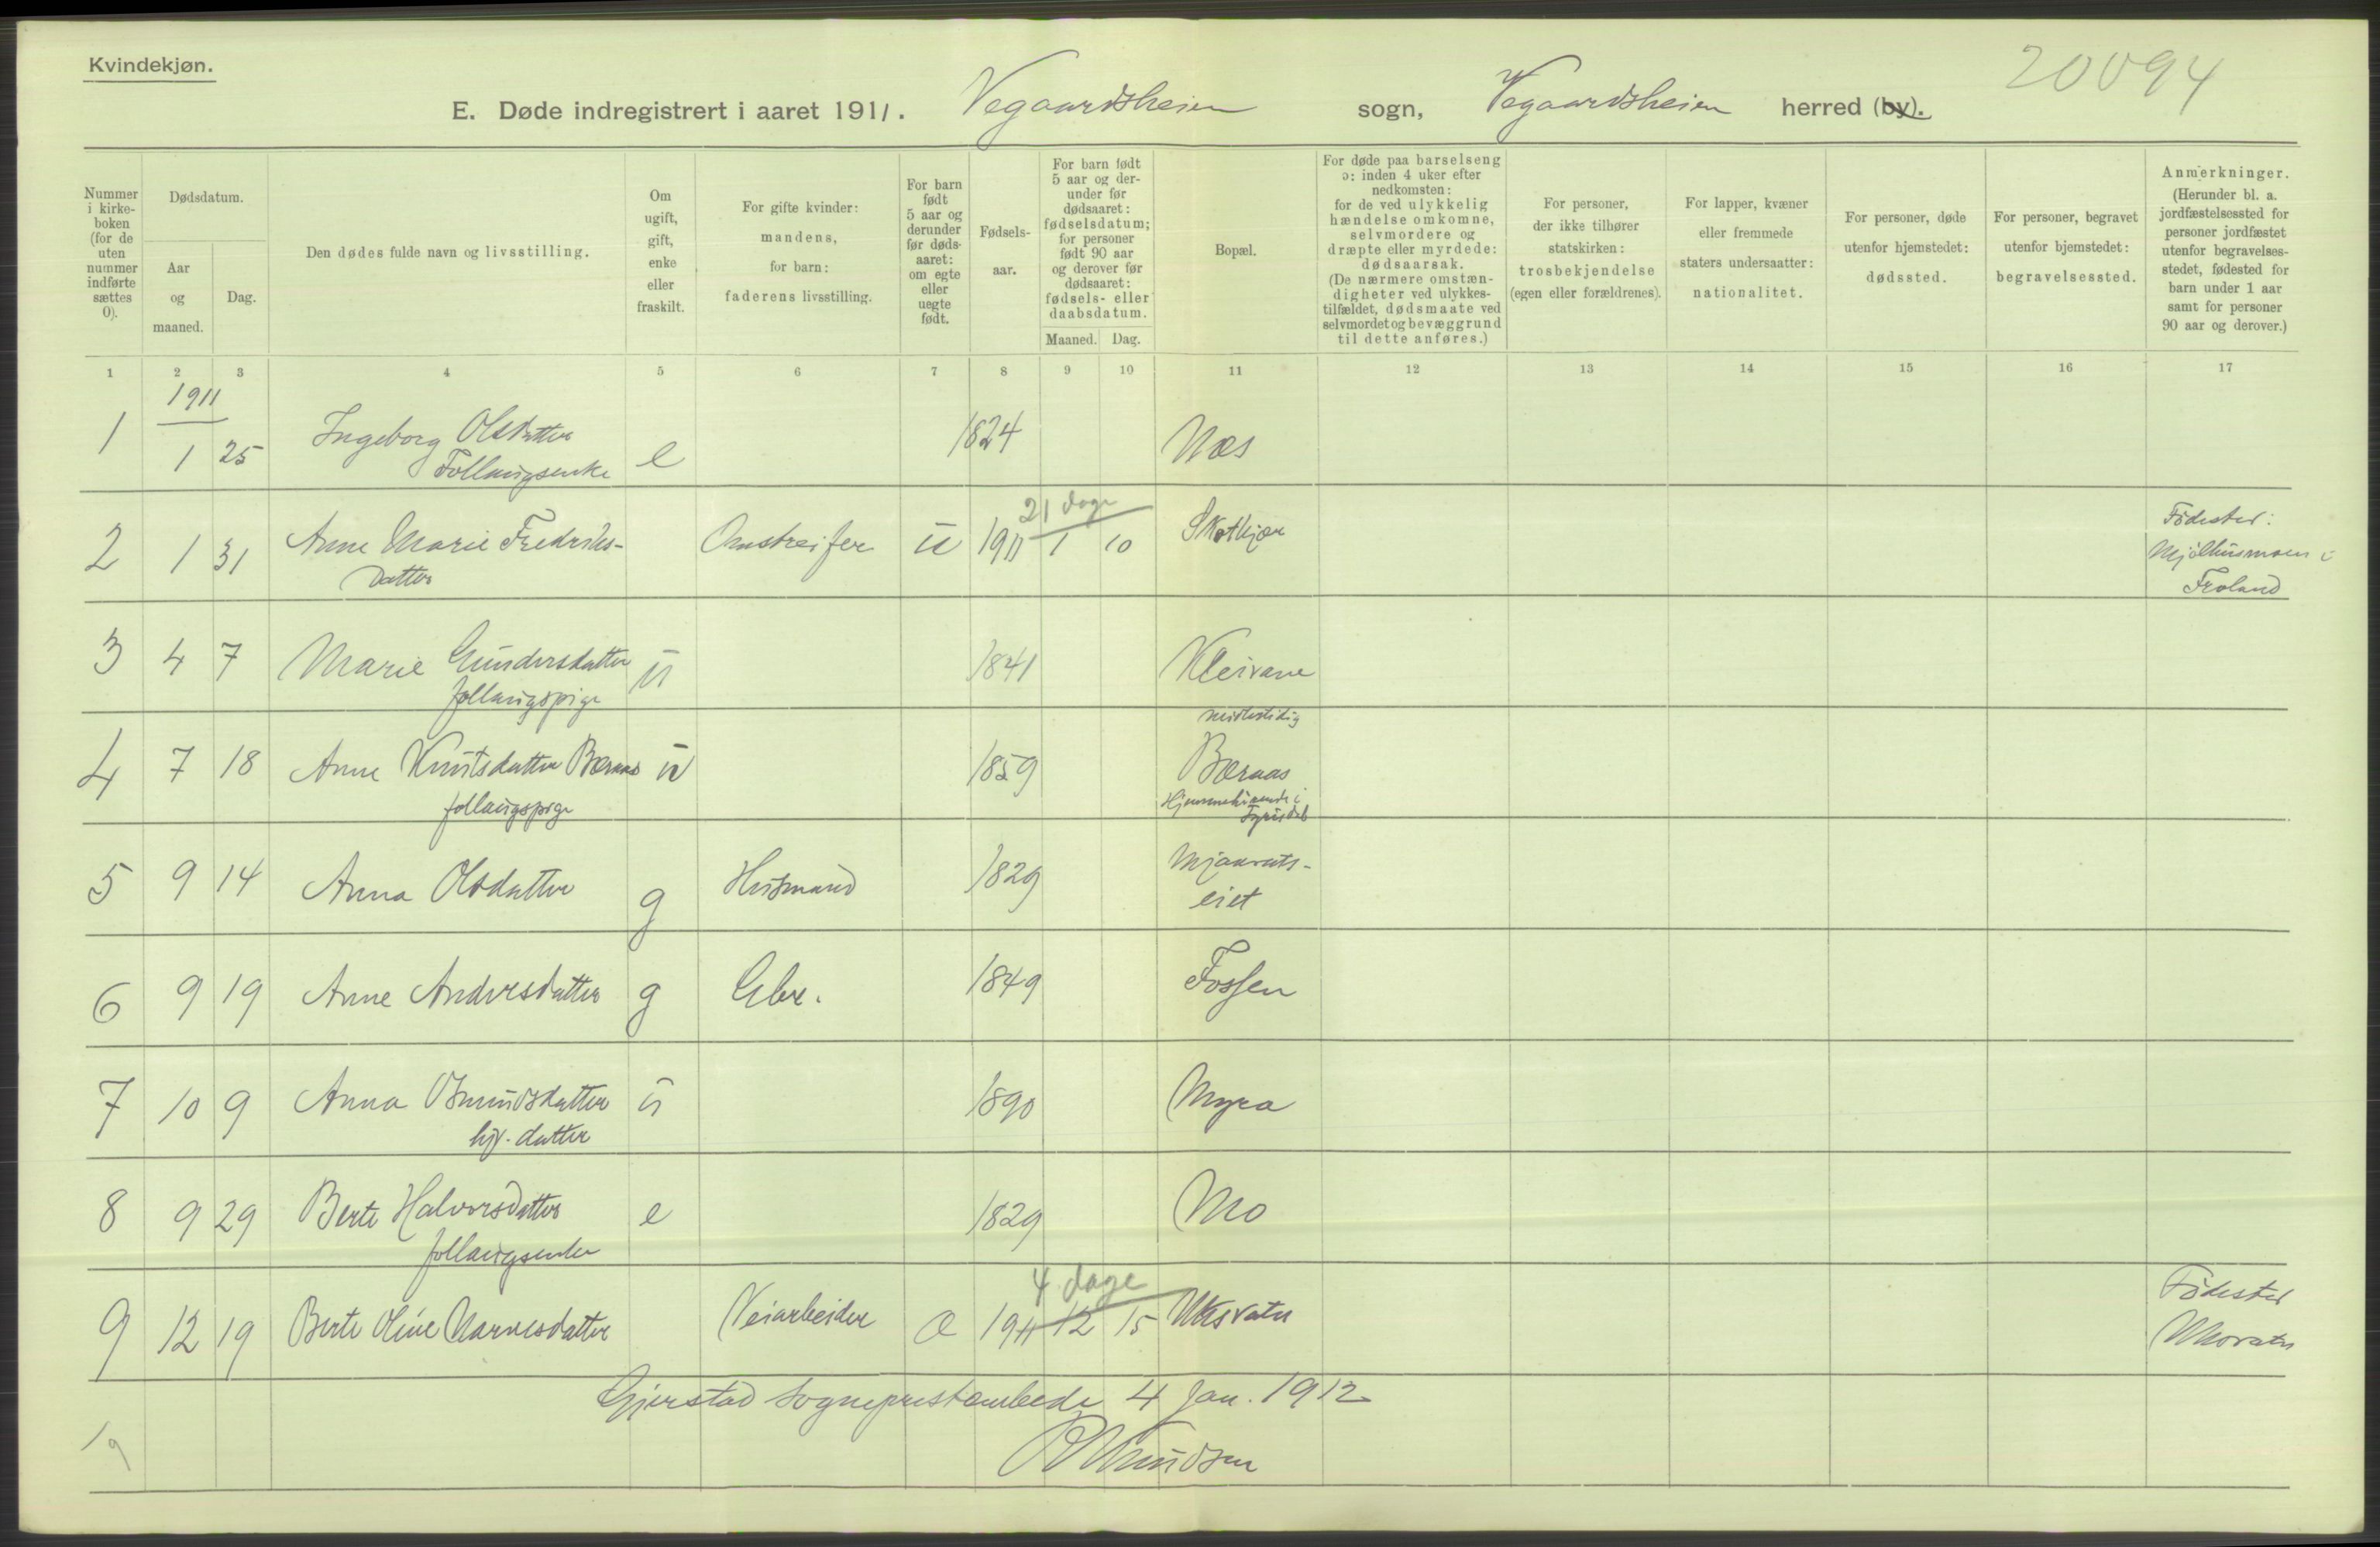 Kvindekjøn.
20094
E. Døde indregistrert i aaret 1911. Vegaardsheien sogn, Vegaardsheien herred (by).
Nummer i kirke-boken (for de uten nummer indførte sættes 0).
Dødsdatum.
Aar og maaned.
Dag.
Den dødes fulde navn og livsstilling.
Om ugift, gift, enke eller fraskilt.
For gifte kvinder: mandens, for barn: faderens livsstilling.
For barn født 5 aar og derunder før døds-aaret: om egte eller uegte født.
Fødsels-aar.
For barn født 5 aar og der-under før dødsaaret: fødselsdatum; for personer født 90 aar og derover før dødsaaret: fødsels- eller daabsdatum.
Maaned. Dag.
Bopæl.
For døde paa barselseng ɔ: inden 4 uker efter nedkomsten: for de ved ulykkelig hændelse omkomne, selvmordere og dræpte eller myrdede: dødsaarsak. (De nærmere omstæn-digheter ved ulykkes-tilfældet, dødsmaate ved selvmordet og bevæggrund til dette anføres.)
For personer, der ikke tilhører statskirken: trosbekjendelse (egen eller forældrenes).
For lapper, kvæner eller fremmede staters undersaatter: nationalitet.
For personer, døde utenfor hjemstedet: dødssted.
For personer, begravet utenfor bjemstedet: begravelsessted.
Anmerkninger. (Herunder bl. a. jordfæstelsessted for personer jordfæstet utenfor begravelses-stedet, fødested for barn under 1 aar samt for personer 90 aar og derover.)
1 2 3 4 5 6 7 8 9 10 11 12 13 14 15 16 17
1911
1 1 25 Ingeborg Olsdatter e 1824 Næs
Follaugsenke
21 dage
2 1 31 Anne Marie Fredriks- Omstreifer u 1911 1 10 Skotkjær Fødested:
datter Mjølhusmoen i
Froland
3 4 7 Marie Gundersdatter u 1841 Kleivane
follaugspige
midlertidig
4 7 18 Anne Knutsdatter Beraas u 1859 Beraas
follaugspige Hjemmehørende i
Fyrisdal
5 9 14 Anna Olsdatter g Husmand 1829 Mjaavats-
eiet
6 9 19 Anne Andersdatter g Gbr. 1849 Fossen
7 10 9 Anna Osmundsdatter u 1890 Myra
hjv. datter
8 9 29 Berte Halvorsdatter e 1829 Mo
follaugsenke
4 dage
9 12 19 Berte Oline Narvesdatter Veiarbeider Æ 1911 12 15 Uksvatn Fødested
Gjerstad sogneprestembede 4 Jan. 1912
Knudsen
19